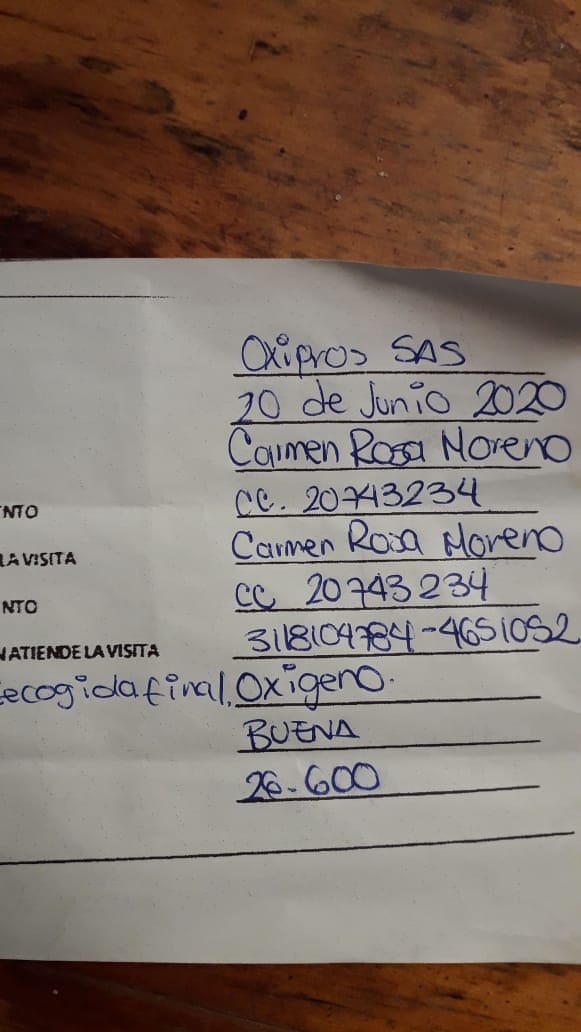 Oxipros SAS
20 de Junio 2020
Carmen Rosa Moreno
NTO CC. 20743234
LA VISITA Carmen Rosa Moreno
NTO CC 20743234
N ATIENDE LA VISITA 3118104784-4651052
ecogida final, Oxigeno.
BUENA
26.600